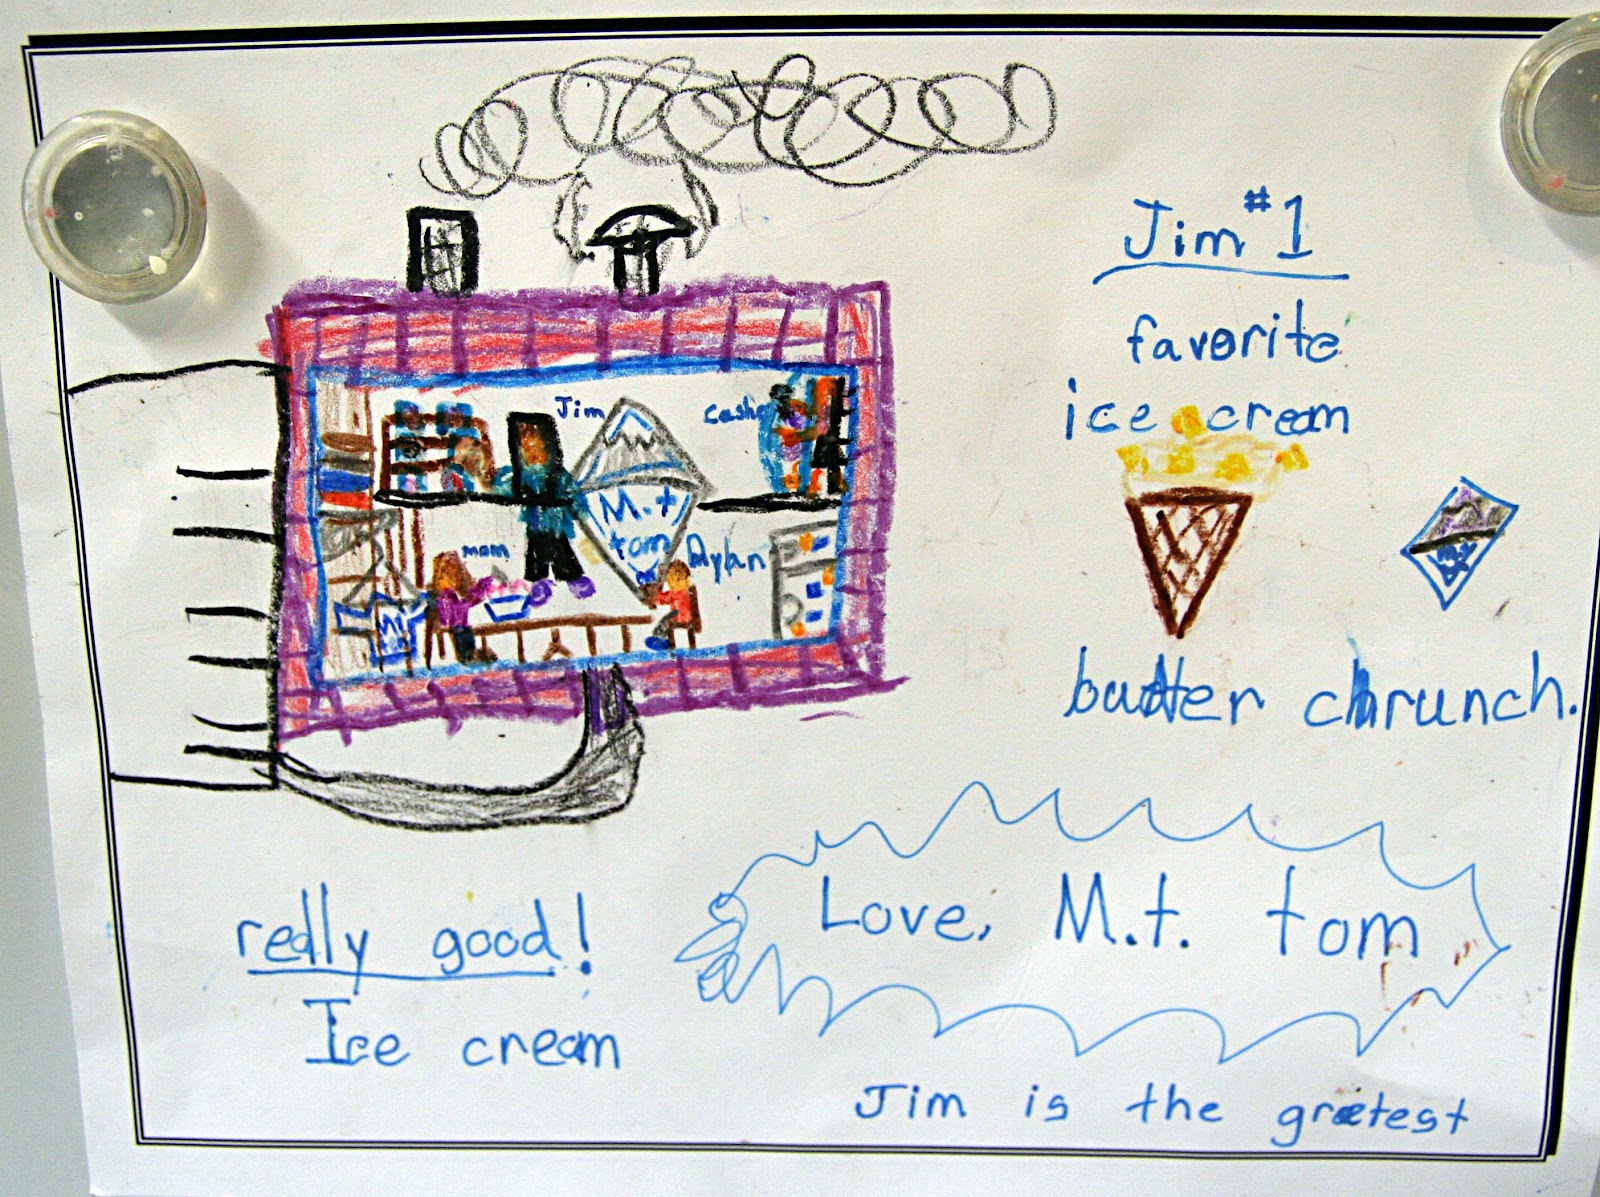 Jim #1
favorite
ice cream
butter chrunch.
Jim
cashe
M.t
tom
mom
Dylan
Mt
really good!
Ice cream
Love, M.t. tom
Jim is the gretest